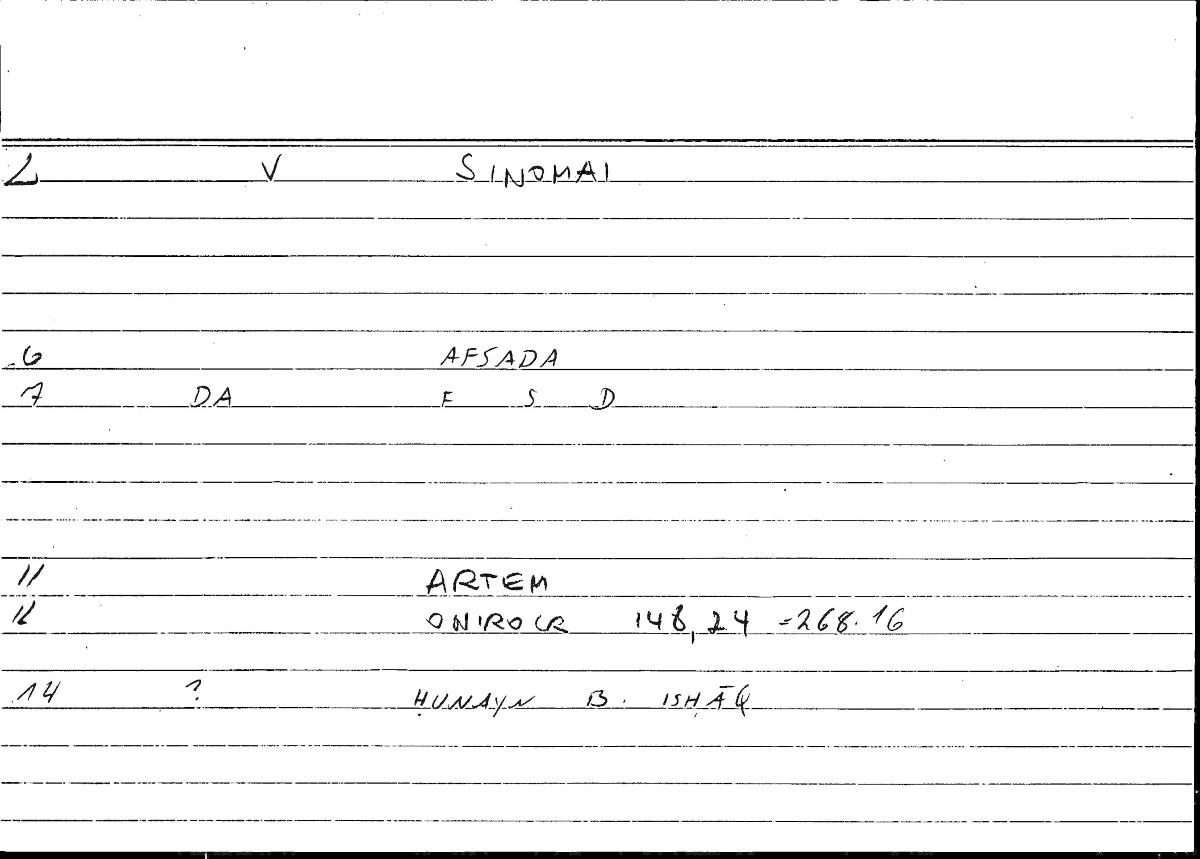 2 V SINOMAI
6 AFSADA
7 DA F S D
11 ARTEM
12 ONIROCR 148,24 =268.16
14 ? ḤUNAYN B. ISḤĀQ